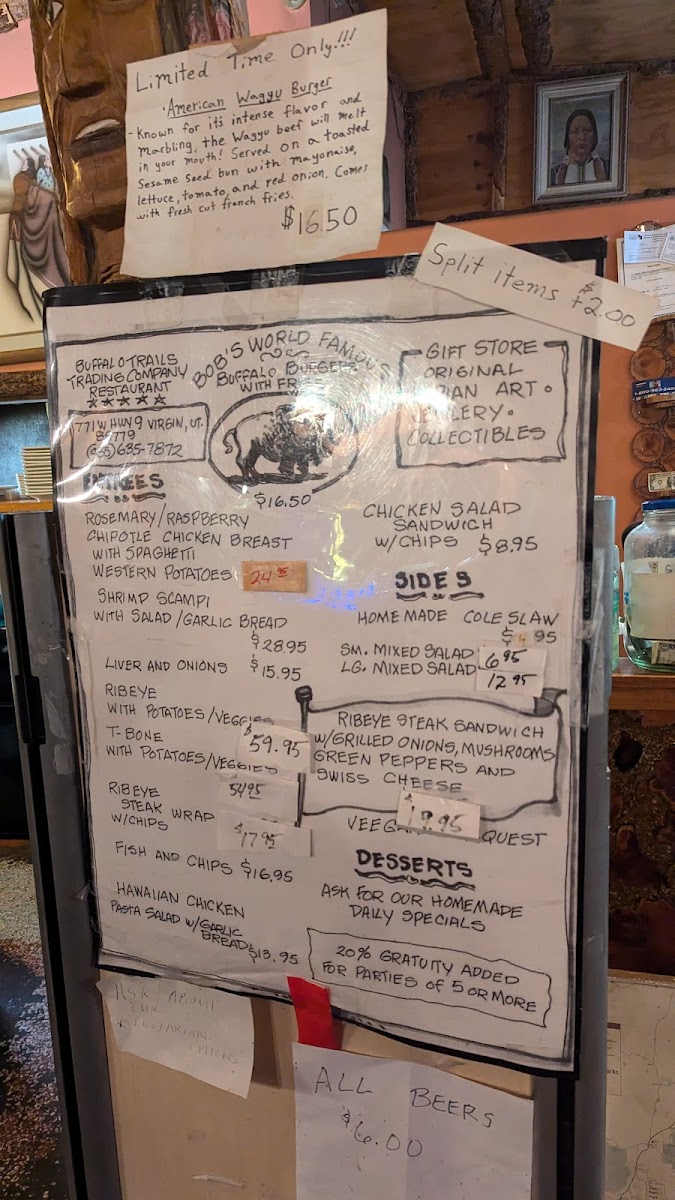 Limited Time Only!!!
American Wagyu Burger
- Known for it's intense flavor and
marbling, the Wagyu beef will melt
in your mouth! Served on a toasted
Sesame Seed bun with mayonaise,
lettuce, tomato, and red onion. Comes
with fresh cut french fries.
$16.50
Split items $+2.00
BUFFALO TRAILS
TRADING COMPANY
RESTAURANT
771 W HWY 9 VIRGIN, UT.
635-7872
BOB'S WORLD FAMOUS
BUFFALO BURGERS
WITH FRIES
$16.50
GIFT STORE
ORIGINAL
ART •
•
COLLECTIBLES
ENTREES
ROSEMARY/RASPBERRY
CHIPOTLE CHICKEN BREAST
WITH SPAGHETTI
WESTERN POTATOES 24.95
SHRIMP SCAMPI
WITH SALAD/GARLIC BREAD
$28.95
LIVER AND ONIONS $15.95
RIBEYE
WITH POTATOES/VEGGIES
$59.95
T-BONE
WITH POTATOES/VEGGIES
54.95
RIBEYE
STEAK WRAP
W/CHIPS $17.95
FISH AND CHIPS $16.95
HAWAIIAN CHICKEN
PASTA SALAD W/GARLIC
BREAD $13.95
CHICKEN SALAD
SANDWICH
W/CHIPS $8.95
SIDES
HOMEMADE COLE SLAW
$4.95
SM. MIXED SALAD 6.95
LG. MIXED SALAD 12.95
RIBEYE STEAK SANDWICH
W/GRILLED ONIONS, MUSHROOMS
GREEN PEPPERS AND
SWISS CHEESE
DESSERTS
ASK FOR OUR HOMEMADE
DAILY SPECIALS
20% GRATUITY ADDED
FOR PARTIES OF 5 OR MORE
ASK ABOUT
OUR
ALL BEERS
$6.00